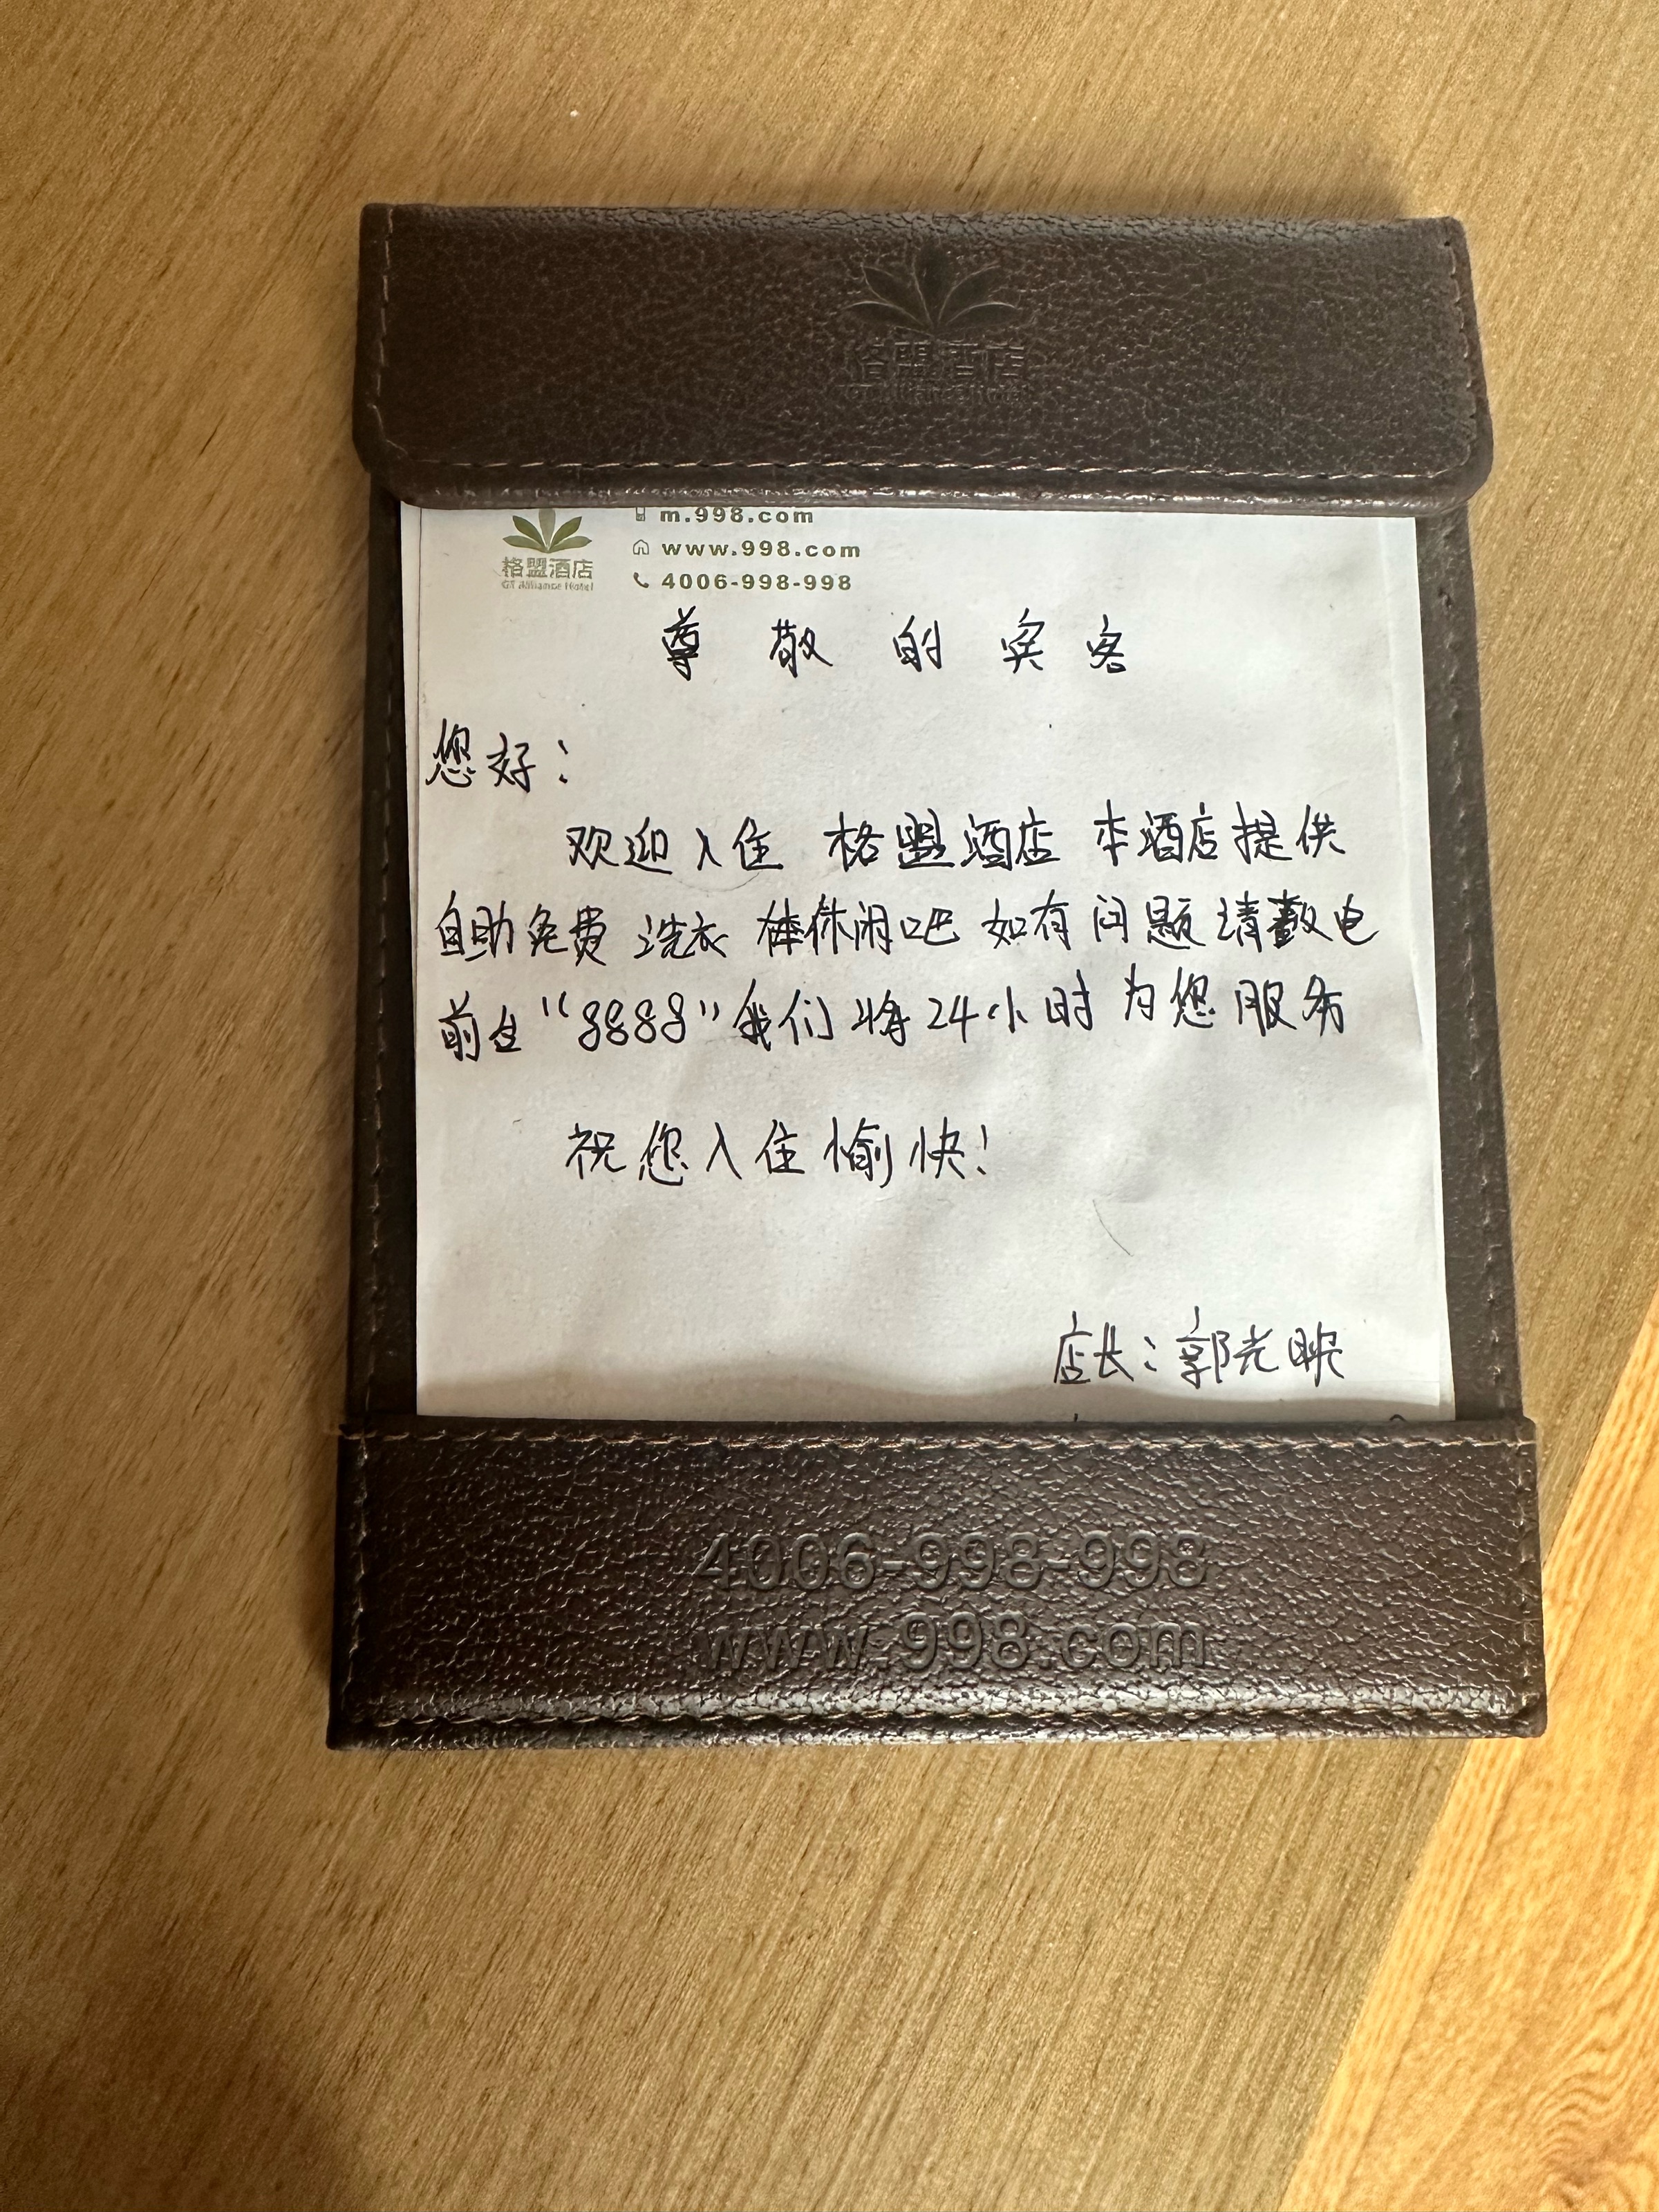 格盟酒店
GT Alliance Hotel
m.998.com
www.998.com
4006-998-998
格盟酒店
GT Alliance Hotel
尊敬的宾客
您好：
欢迎入住 格盟酒店 本酒店提供
自助免费 洗衣 休闲吧 如有问题请致电
前台“8888”我们将24小时为您服务
祝您入住愉快！
店长：郭光
4006-998-998
www.998.com